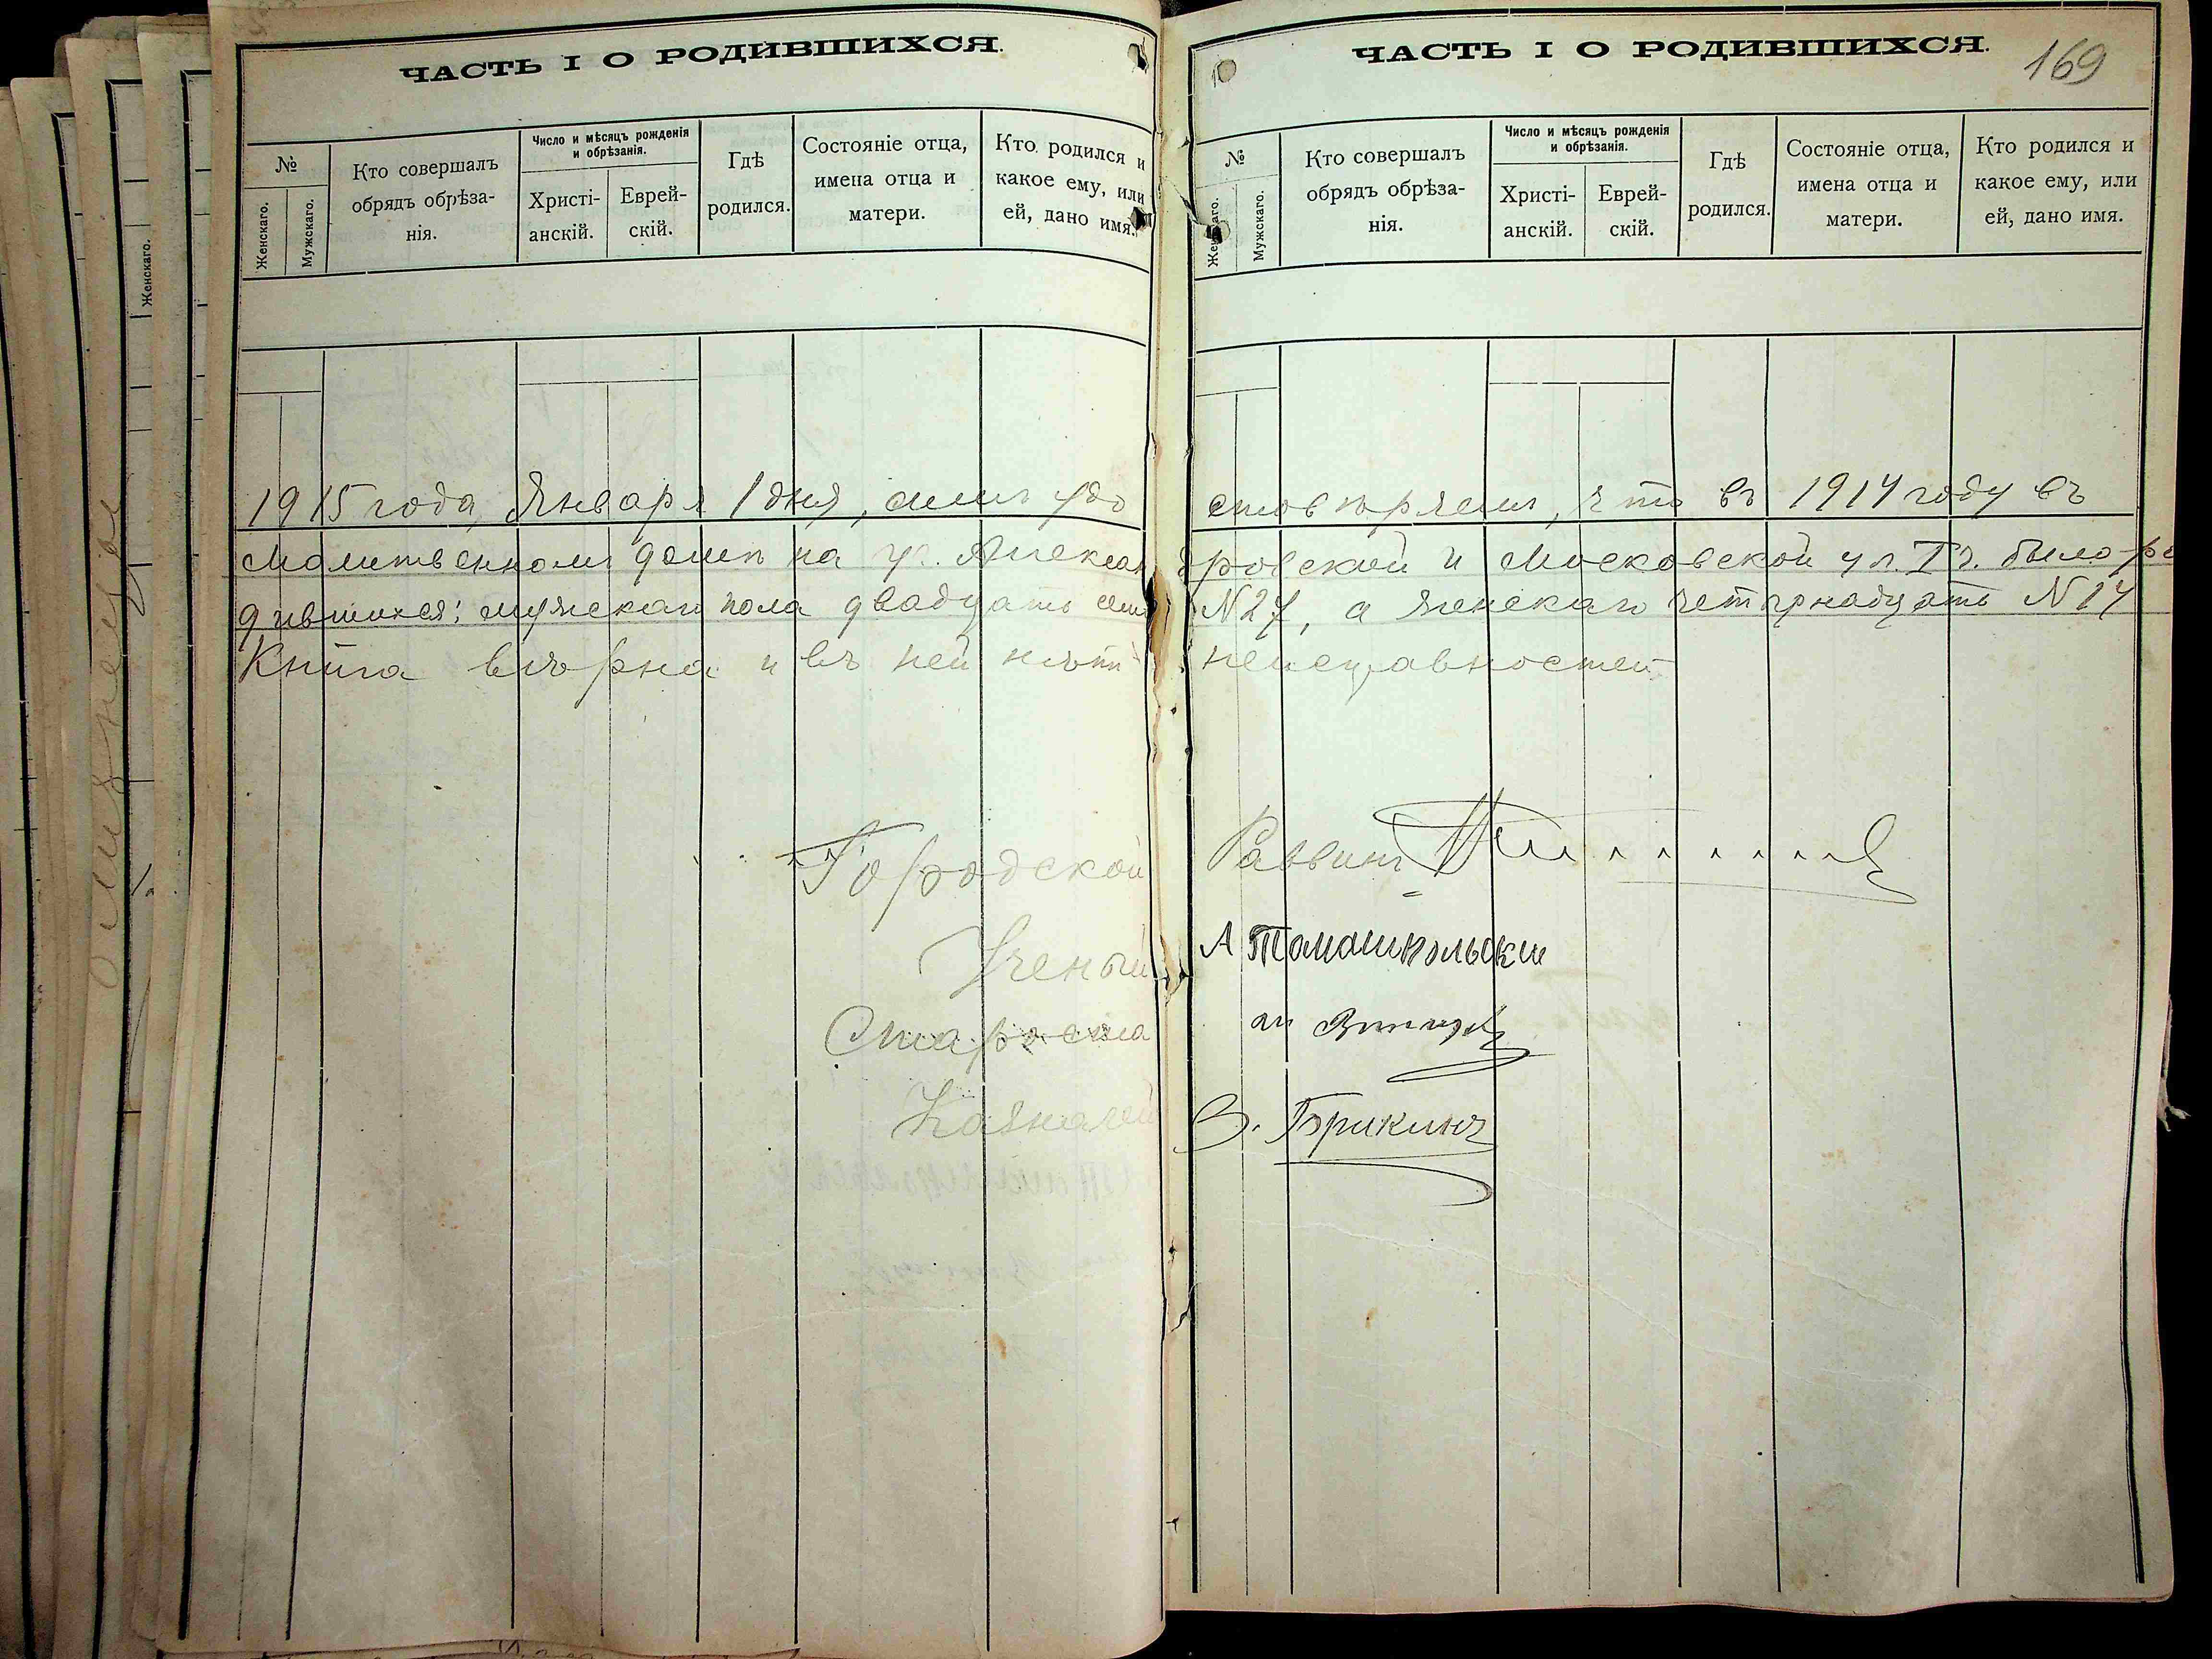 ЧАСТЬ I О РОДИВШИХСЯ.
№
Женскаго.
Мужскаго.
Кто совершалъ
обрядъ обрѣза-
нія.
Число и мѣсяцъ рожденія
и обрѣзанія.
Христі-
анскій.
Еврей-
скій.
Гдѣ
родился.
Состояніе отца,
имена отца и
матери.
Кто родился и
какое ему, или
ей, дано имя.
ЧАСТЬ I О РОДИВШИХСЯ.
169
№
Женскаго.
Мужскаго.
Кто совершалъ
обрядъ обрѣза-
нія.
Число и мѣсяцъ рожденія
и обрѣзанія.
Христі-
анскій.
Еврей-
скій.
Гдѣ
родился.
Состояніе отца,
имена отца и
матери.
Кто родился и
какое ему, или
ей, дано имя.
1915 года, Января 1 дня, симъ удостовѣряемъ, что въ 1914 году въ
Молитвенномъ домѣ на уг. Александровской и Московской ул. I ч. было ро
дившихся: мужскаго пола двадцать семь №27, а женскаго четырнадцать №14
Книга вѣрна и въ ней нѣтъ неисправностей
Городской Раввинъ
Ученый А Томашпольскій
Староста
Казначей З. Брикинъ
Женскаго.